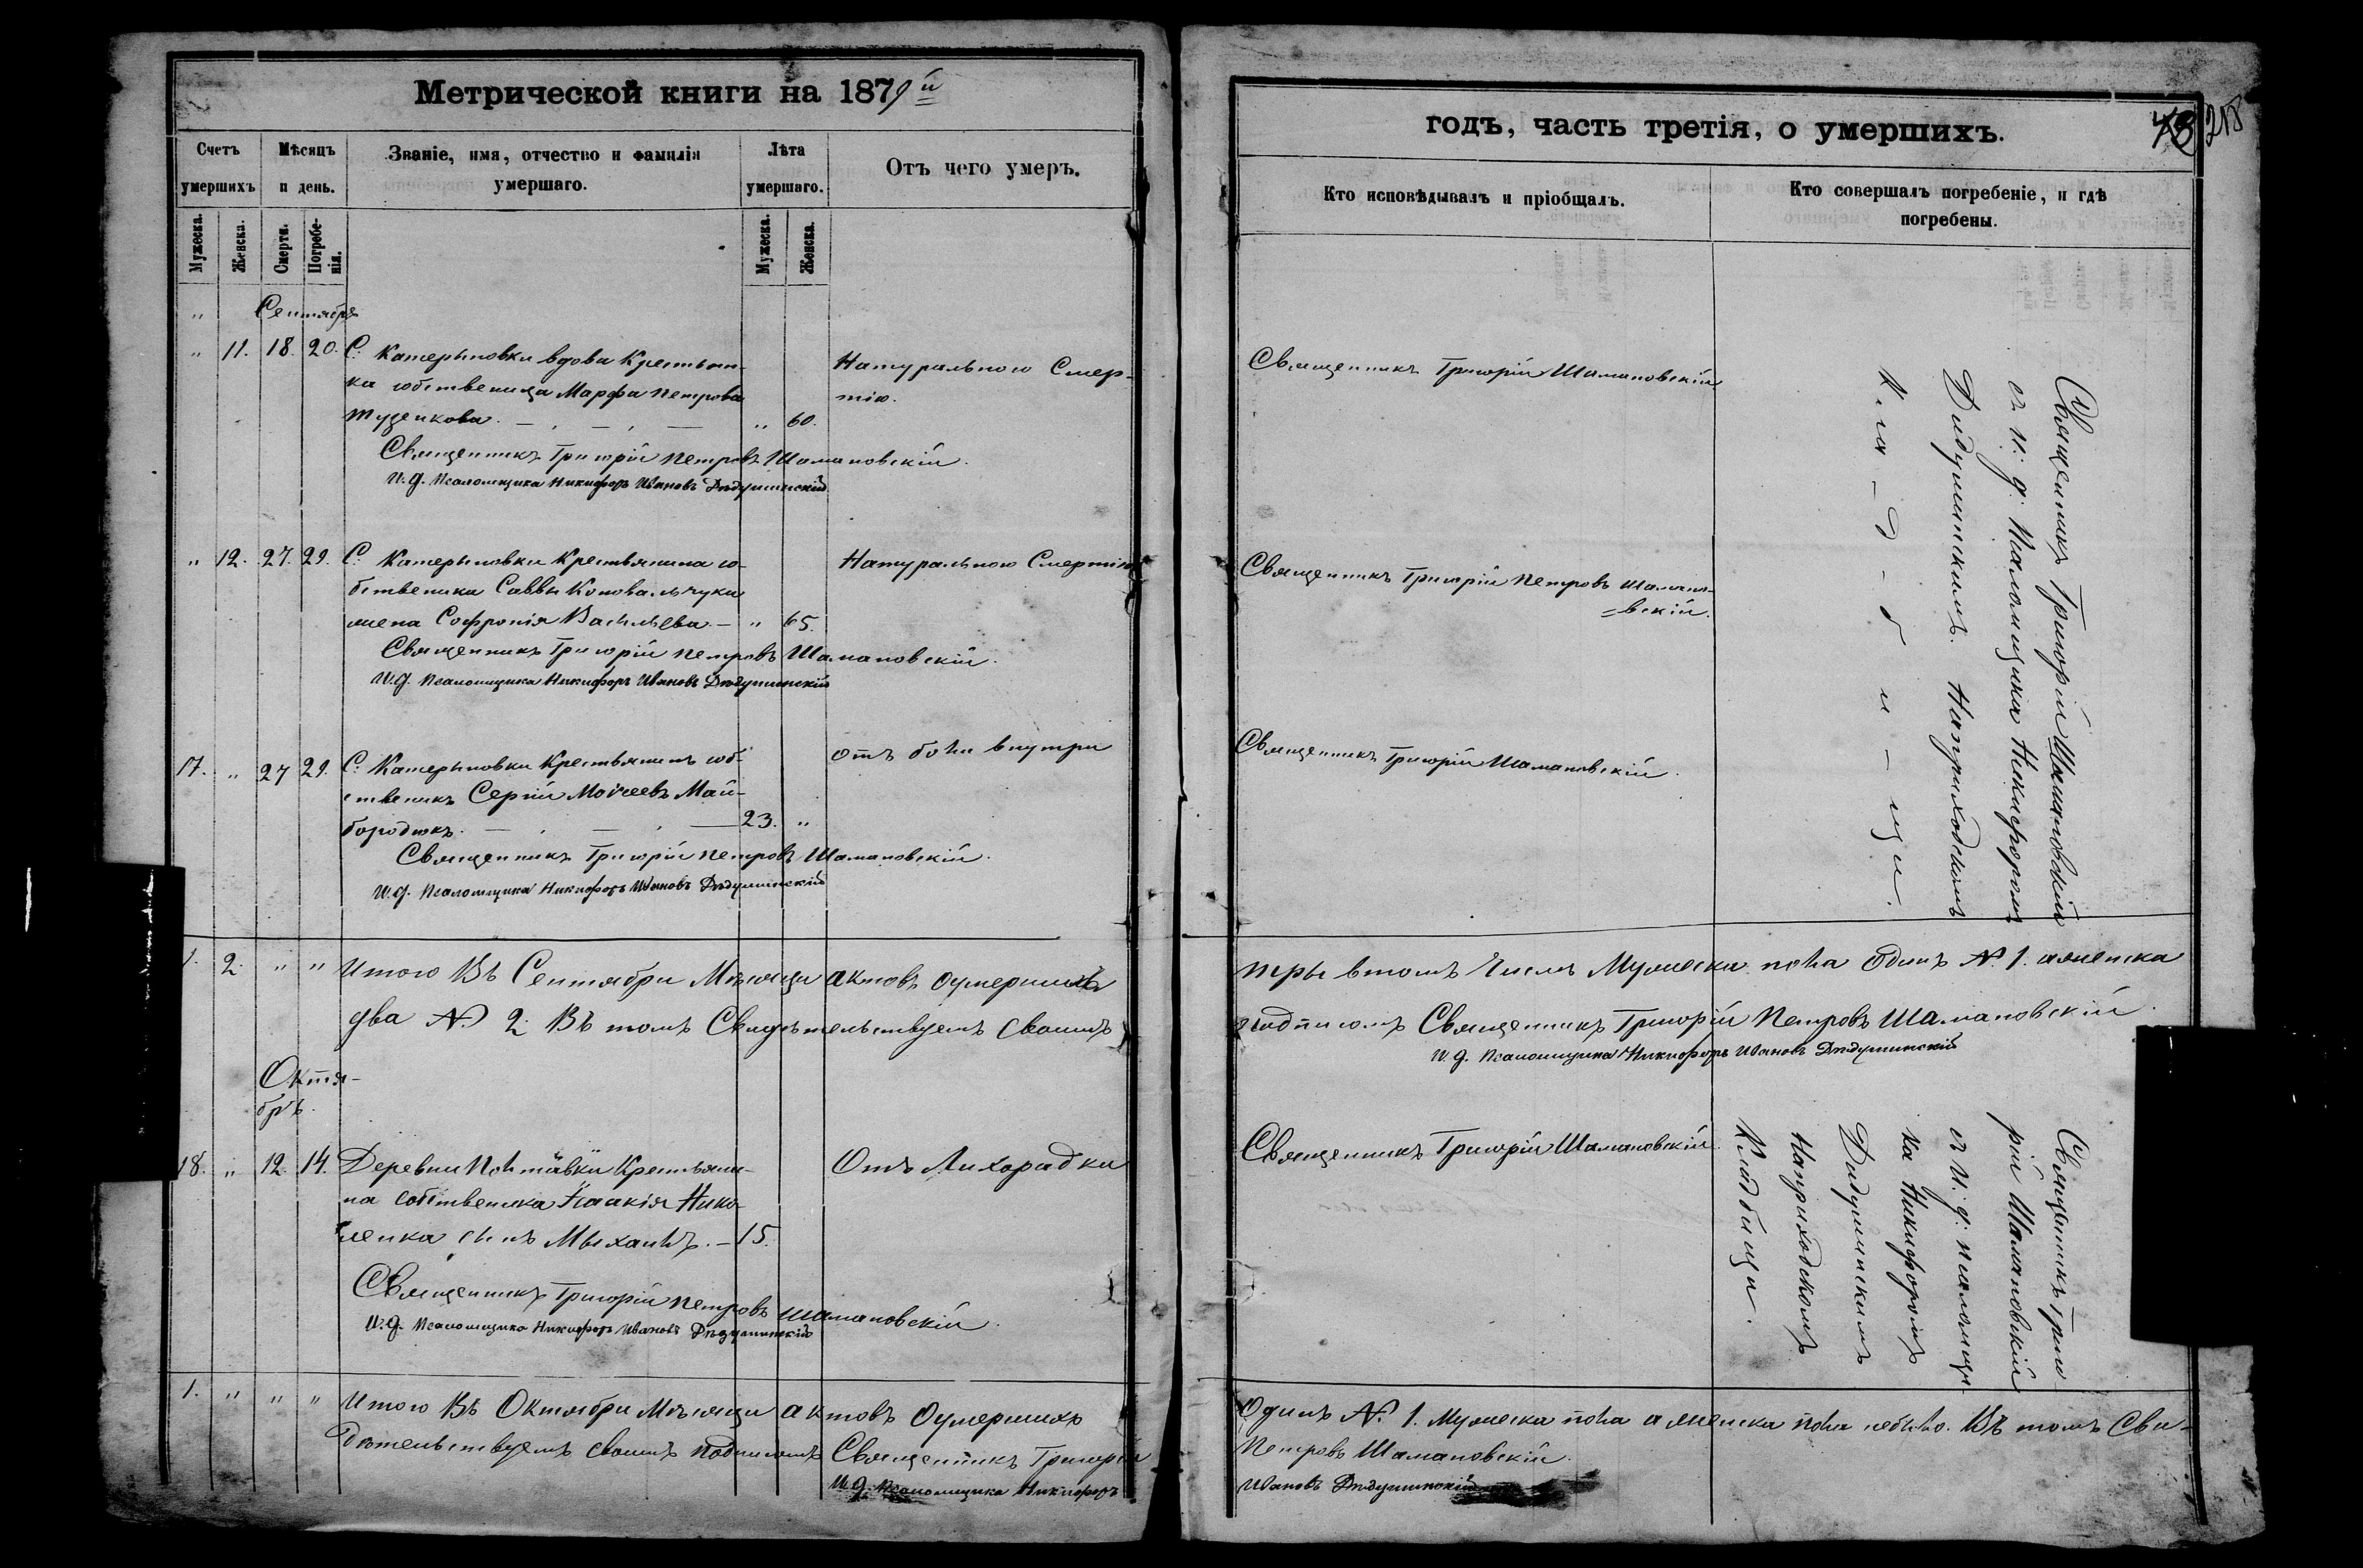 Метрической книги на 1879й
Счетъ умершихъ
Мѣсяцъ и день.
Званіе, имя, отчество и фамилія умершаго.
Лѣта умершаго.
Отъ чего умеръ.
Мужеска.
Женска.
Смерти.
Погребенія.
Мужеска.
Женска.
" Сентября
" 11. 18. 20. С. Катериновки вдова Крестьян-
ка собственица Марфа Петрова
" 60.
Натуральною Смер-
тію.
Священникъ Григорій Петровъ Шамановскій.
И.д. Псаломщика Никифоръ Ивановъ Дѣдушинскій
" 12. 27. 29. С. Катериновки Крестьянина со-
бственика Саввы Коновальчука
жена Софронія Васильева. — " 65.
Натуральною Смертію
Священникъ Григорій Петровъ Шамановскій.
И.д. Псаломщика Никифоръ Ивановъ Дѣдушинскій
17. " 27 29. С. Катериновки Крестьянинъ соб-
ственикъ Сергій Моисеевъ Май-
бородюкъ. — 23. "
отъ боли внутри
Священникъ Григорій Петровъ Шамановскій.
И.д. Псаломщика Никифоръ Ивановъ Дѣдушинскій
1. 2. " " Итого Въ Сентябри Мѣсяци актовъ оумершихъ
два №. 2. Въ томъ Свидѣтельствуемъ своимъ
Октя-
бръ.
18. " 12. 14. Деревни Крестьяни-
на собственика Нико
ленка сынъ Михаилъ. — 15.
Отъ Лихорадки
Священникъ Григорій Петровъ Шамановскій.
И.д. Псаломщика Никифоръ Ивановъ Дѣдушинскій
1. " " " Итого Въ Октябри Мѣсяци актовъ Оумершихъ
дѣтельствуемъ своимъ подписомъ Священникъ Григорій
И.д. Псаломщика Никифоръ
годъ, часть третія, о умершихъ.
Кто исповѣдывалъ и пріобщалъ.
Кто совершалъ погребеніе, и гдѣ погребены.
Священникъ Григорій Шамановскій
Священникъ Григорій Петровъ Шамано-
=вскій.
Священникъ Григорій Шамановскій.
Священникъ Григорій Шамановскій
съ И. д. Псаломщика Никифоромъ
Дидушинскимъ. Наприходскомъ
Кла-д-б-и-щи.
тры втомъ Числѣ Мужеска пола Одинъ №. 1. аженска
подписомъ Священникъ Григорій Петровъ Шамановскій.
И.д. Псаломщика Никифоръ Ивановъ Дѣдушинскій
Священникъ Григорій Шамановскій.
Священникъ Григо
рій Шамановскій
съ И. д. псаломщи-
ка Никифоромъ
Дидушинскимъ
Наприходскомъ
Кладбищи.
Одинъ №. 1. Мужеска пола а женска пола небыло. Въ томъ Сви-
Петровъ Шамановскій.
Ивановъ Дѣдушинскій